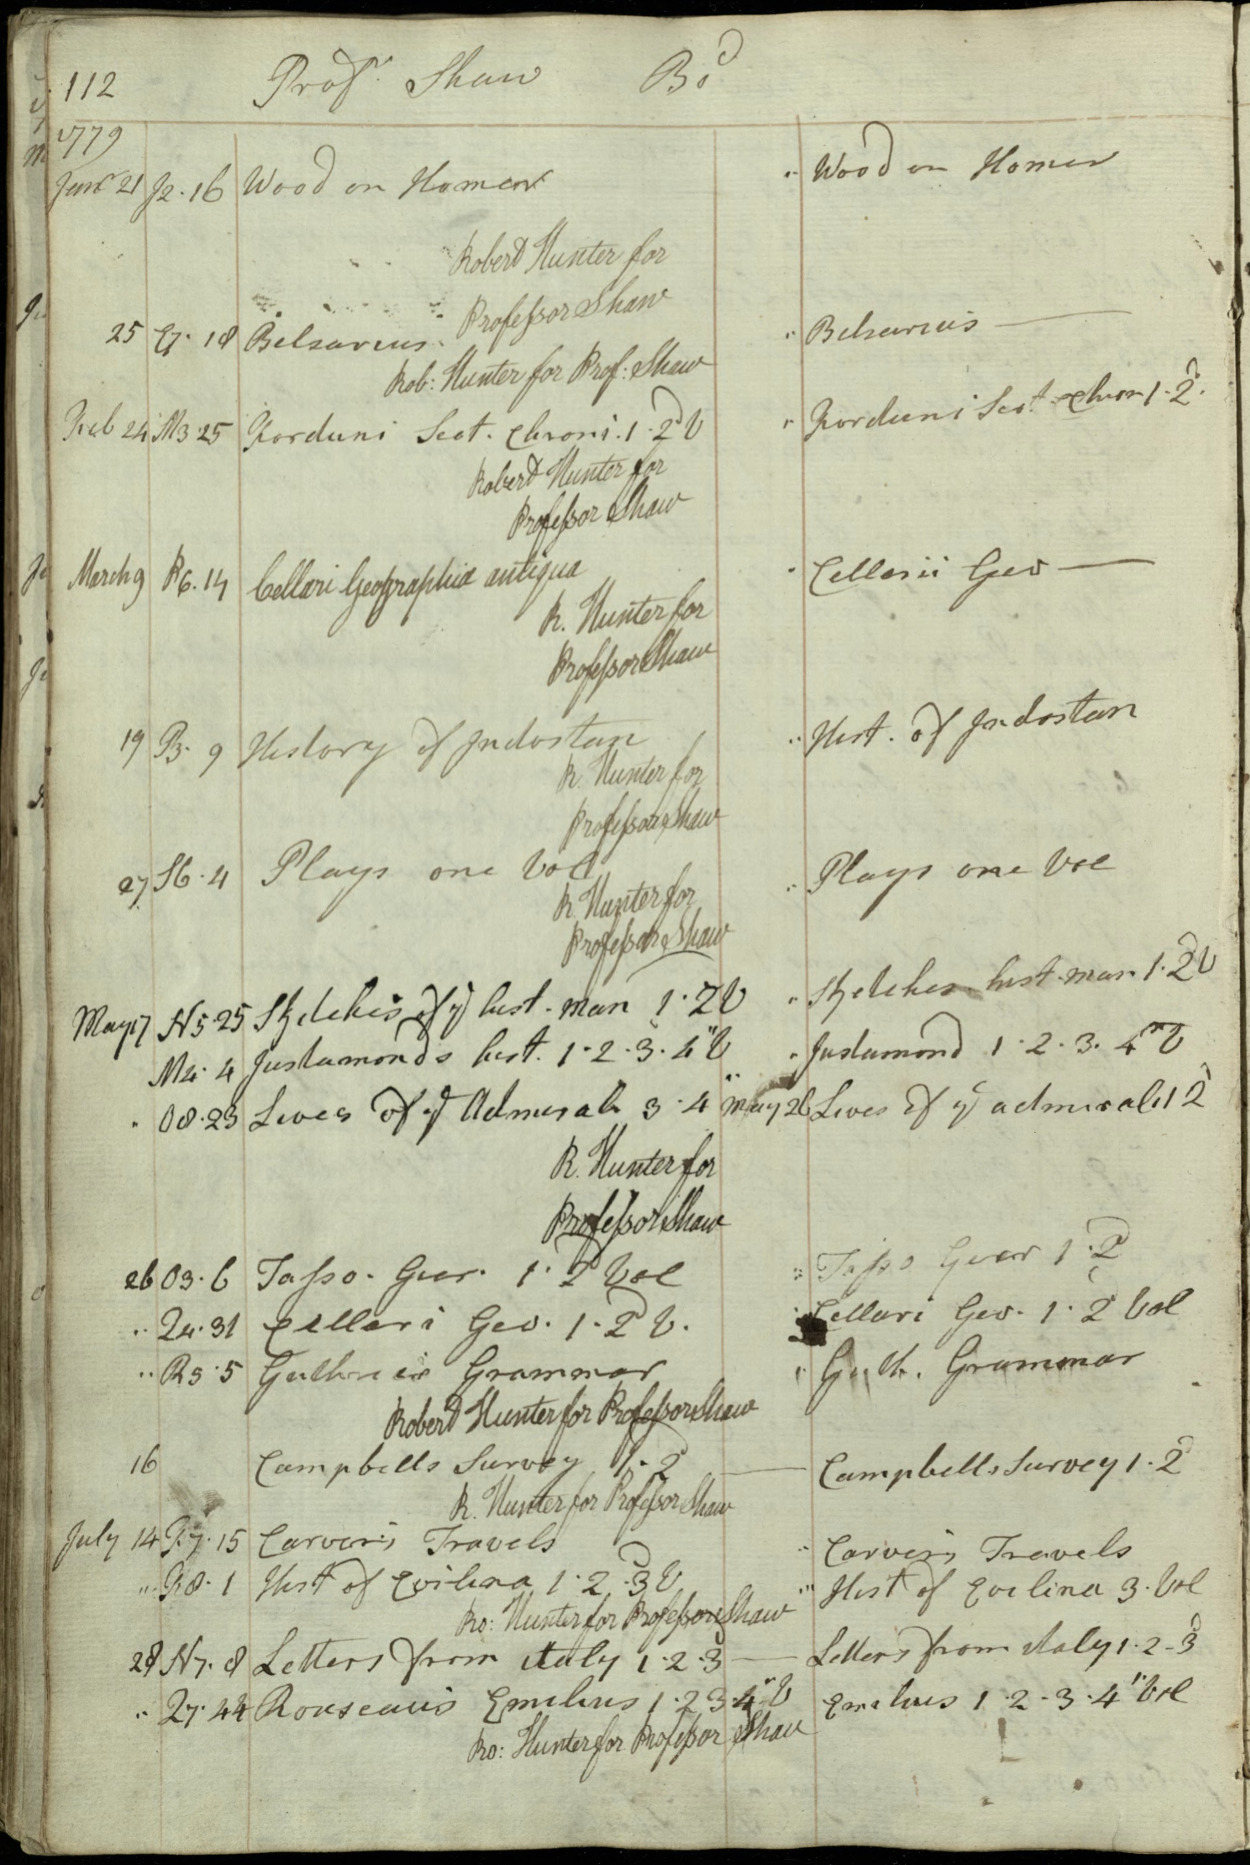 112 Prof.r Shaw Bd
1779
Janr 21 J2. 16 Wood on Homer " Wood on Homer
Robert Hunter for
Professor Shaw
25 18 Belsarius " Belsarius
Rob: Hunter for Prof: Shaw
Feb 24 M3. 25 Forduni Scot. Chroni. 1. 2d V " Forduni Scot. Chron 1. 2d.
Robert Hunter for
Professor Shaw
March 9 R6. 14 Cellari Geographia antiqua " Cellerii Geo
R. Hunter for
Professor Shaw
19 P3. 9 History of Indostan " Hist. of Indostan
R. Hunter for
Professor Shaw
27 S6. 4 Plays one Vol " Plays one Vol
R. Hunter for
Professor Shaw
May 17 N5. 25 Skelches of ye hist. man 1. 2d V " Skelches hist. man 1. 2d V
M4. 4 Justamonds hist. 1. 2. 3. 4th V " Justamond 1. 2. 3. 4th V
" O8. 23 Lives of ye Admirals 3. 4 May 26 Lives of ye admirals 1 2d
R. Hunter for
Professor Shaw
26 O3. 6 Tasso. Gier. 1. 2d Vol " Tasso Gier 1. 2d
" Z4. 31 Cellari Geo. 1. 2d V. Cellari Geo. 1. 2d Vol
" R5. 5 Guthries Grammar " Guth. Grammar
Robert Hunter for Professor Shaw
16 Campbells Survey 1. 2d Campbells Survey 1. 2d
R. Hunter for Professor Shaw
July 14 P.7. 15 Carver's Travels " Carvers Travels
" P.8. 1 Hist of Evilina 1. 2. 3d V " Hist of Evelina 3. Vol
Ro: Hunter for Professor Shaw
28 N7. 8 Letters from Italy 1. 2. 3d Letters from italy 1. 2. 3d
" Z7. 44 Rouseaus Emilius 1. 2 3. 4th V Emilius 1. 2. 3. 4th Vol
Ro: Hunter for Professor Shaw